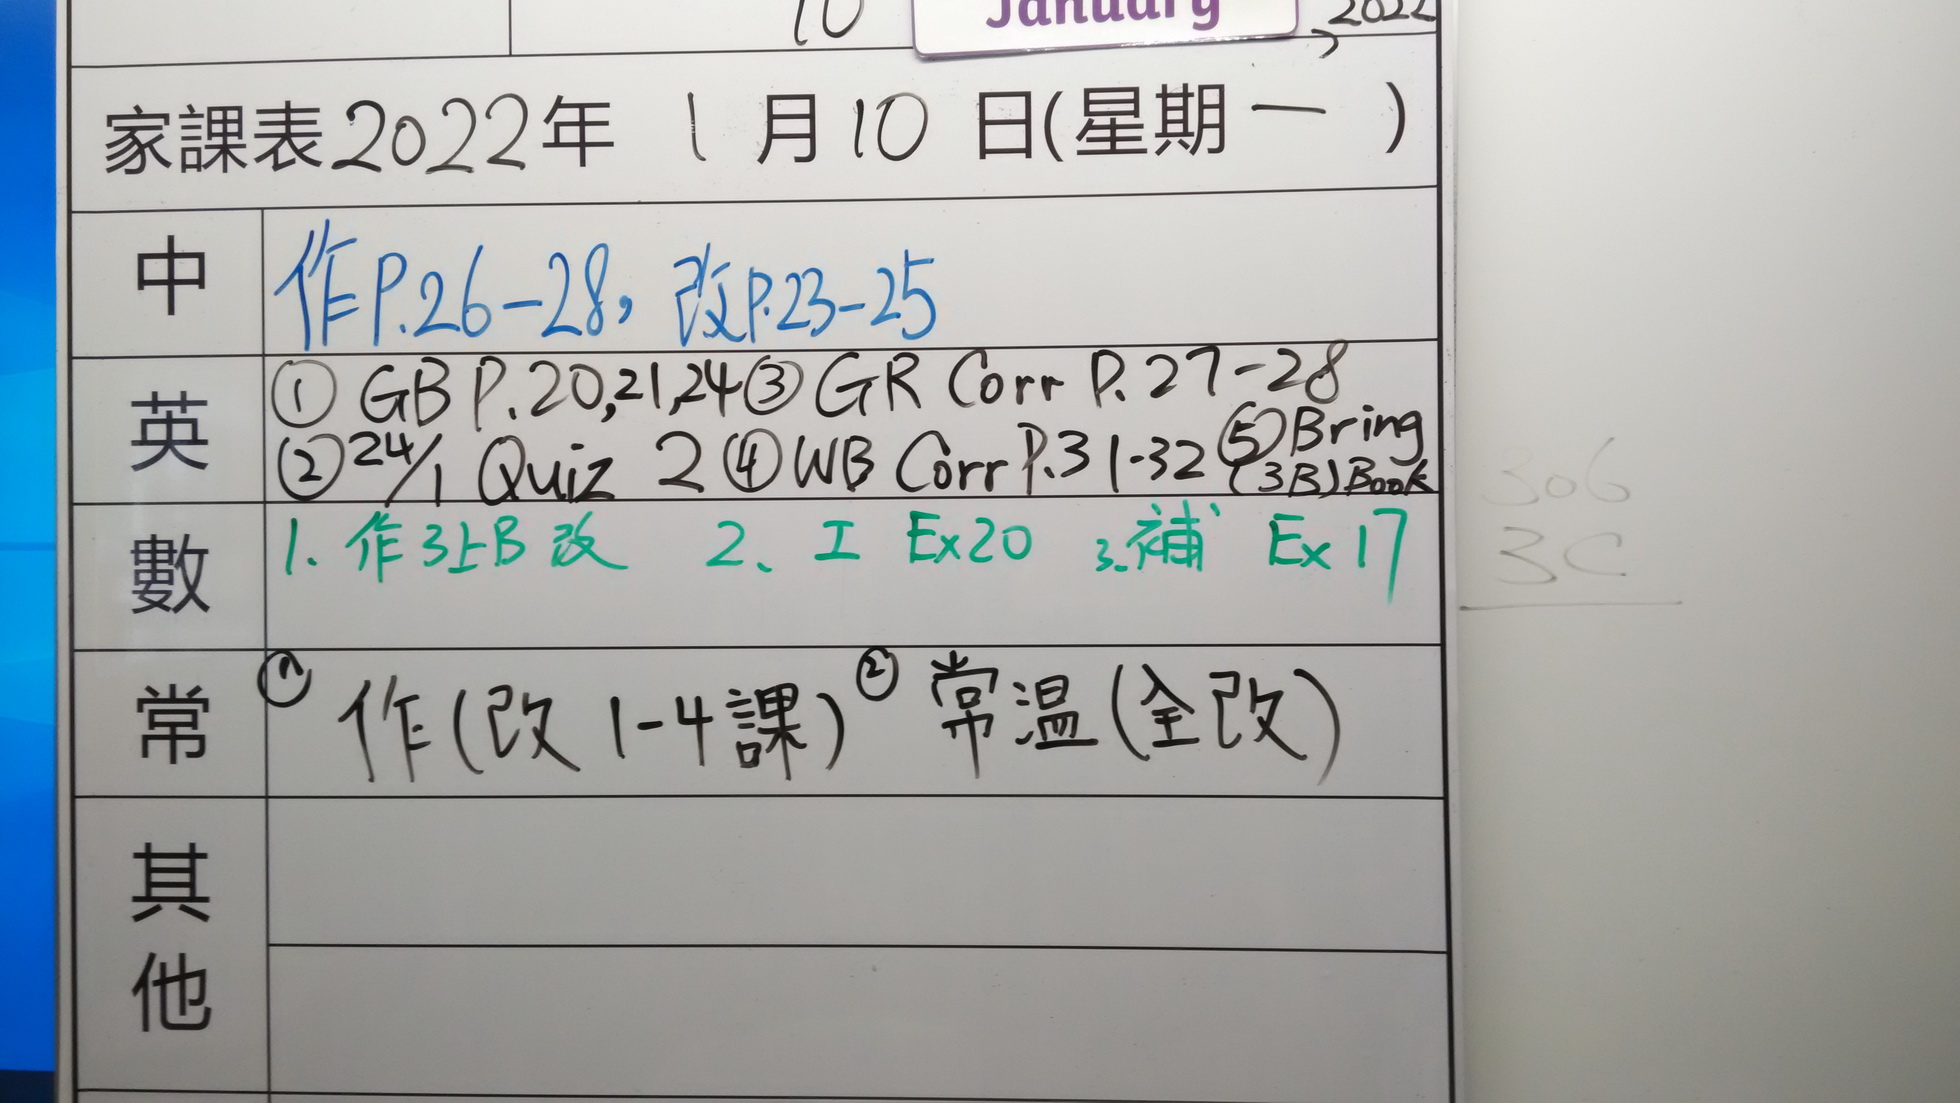 10 January 2022
家課表2022年 1月10日(星期一)
中
作P.26-28，改P.23-25
英
① GB P.20,21,24 ③ GR Corr P.27-28
② 24/1 Quiz 2 ④ WB Corr P.31-32 ⑤ Bring
(3B) Book
數
1. 作3上B改 2、工 Ex20 3.補 Ex 17
常
① 作(改1-4課) ② 常温(全改)
其
他
306
3C